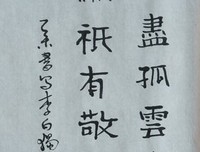 盡孤雲
祇有敬
書写李白獨